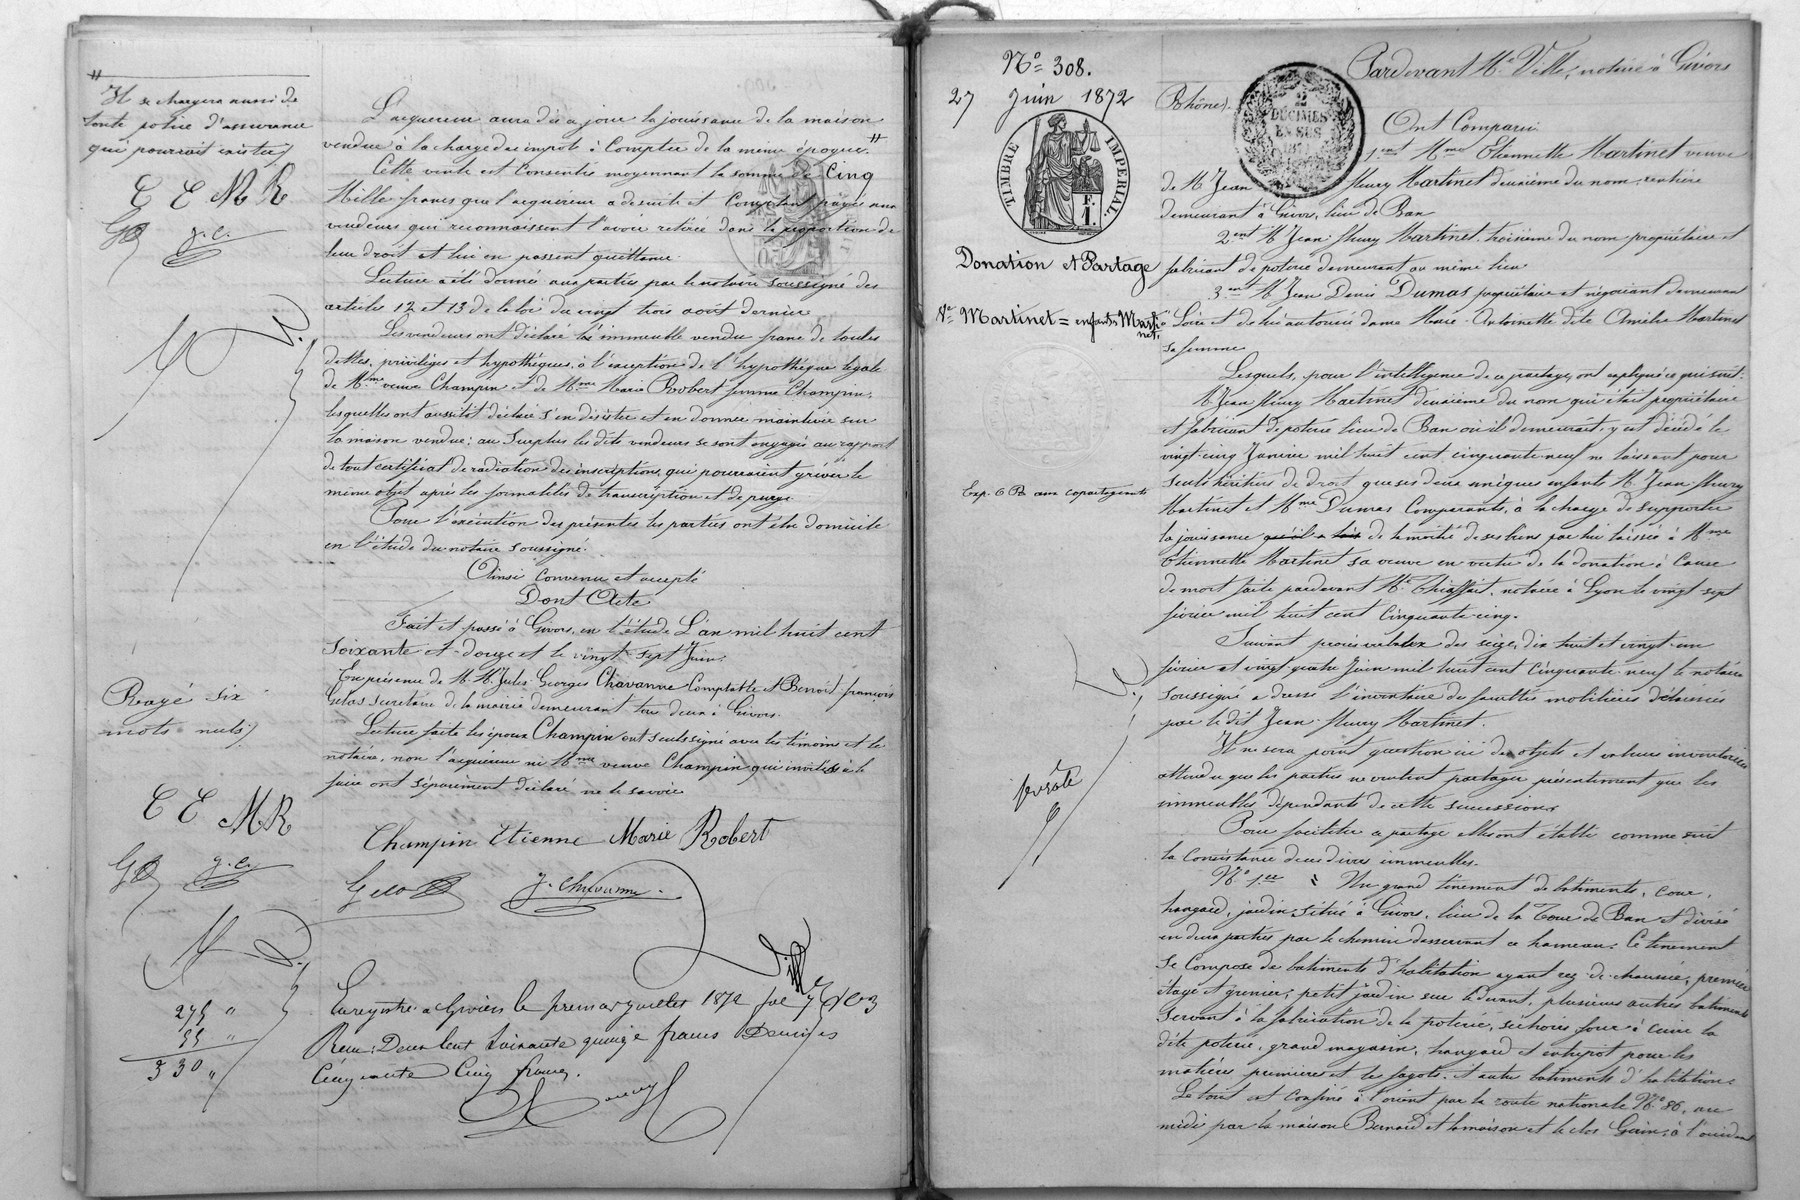 "
Il se chargera aussi de
toute police d'assurance
qui pourrait exister
C E M R
G
J. C.
L'acquereur aura dès ce jour la jouissance de la maison
vendue à la charge des impots à Compter de la même époque. "
Cette vente est Consentie moyennant la somme de Cinq
Mille francs que l'acquereur a de suite et Comptant payés aux
vendeurs qui reconnaissent l'avoir retirée dans la proportion de
leur droit et lui en passent quittance.
Lecture a été donnée aux parties par le notaire soussigné des
articles 12 et 13 de la loi du vingt trois août dernier
Les vendeurs ont déclaré les immeuble vendu franc de toutes
dettes, privilèges et hypothèques, à l'exception de l'hypothèque légale
de Mme veuve Champin et de Mme Marie Robert femme Champin,
lesquelles ont aussitôt déclaré s'en désister et en donner mainlevée sur
la maison vendue; au surplus les dits vendeurs se sont engagés au rapport
de tout certificat de radiation des inscriptions, qui pourraient gréver le
même objet après les formalités de transcription et de purge
Pour l'exécution des présentes les parties ont élu domicile
en l'étude du notaire soussigné.
Ainsi convenu et accepté
Dont Acte
Fait et passé à Givors, en l'étude L'an mil huit cent
soixante et douze et le vingt sept Juin.
En présence de M.M. Jules Georges Chavanne Comptable et Benoit françois
Gelas secrétaire de la mairie demeurant tous deux à Givors.
Lecture faite les époux Champin ont seuls signé avec les témoins et le
notaire, non l'acquereur ni Mme veuve Champin qui invités à le
faire ont séparément déclaré ne le savoir
Rayé six
mots nuls
C E M R
G
J. C.
Champin Etienne Marie Robert
Gelas J. Chavanne
Ville
275 "
55 "
330 "
Enregistré à Givors le premier juillet 1872 fol
Reçu: Deux Cent Soixante quinze francs Décimes
Cinquante Cinq francs.
No 308.
27 Juin 1872
TIMBRE IMPERIAL
F.
1.
Donation et Partage
Ve Martinet = enfants Marti
net.
Exp. aux copartageants
2
DÉCIMES
EN SUS
Pardevant Me Ville, notaire à Givors
(Rhône).
Ont Comparu
1ent Mme Etiennette Martinet veuve
de M Jean fleury Martinet deuxième du nom, rentière
demeurant à Givors, lieu de Ban
2ent M Jean fleury Martinet, troisième du nom propriétaire et
fabricant de poterie demeurant au même lieu
3ent M Jean Denis Dumas propriétaire et négociant demeurant
à Loire et de lui autorisée dame Marie-Antoinette dite Amélie Martinet
sa femme
Lesquels, pour l'intelligence de ce partage, ont expliqué ce qui suit:
M Jean fleury Martinet deuxième du nom qui était propriétaire
et fabricant de poterie lieu de Ban où il demeurait, y est décédé le
vingt-cinq Janvier mil huit cent cinquante-neuf ne laissant pour
seuls héritiers de droit, que ses deux uniques enfants M. Jean fleury
Martinet et Mme Dumas Comparants, à la charge de supporter
la jouissance de la moitié de ses biens par lui laissée à Mme
Etiennette Martinet sa veuve en vertu de la donation à Cause
de mort faite pardevant Me Thiaffait, notaire à Lyon le vingt-sept
février mil huit cent Cinquante-cinq.
Suivant procès verbaux des seize, dix huit et vingt-un
février et vingt quatre Juin mil huit cent Cinquante-neuf le notaire
soussigné a dressé l'inventaire des facultés mobilières délaissées
par le dit Jean fleury Martinet.
Il ne sera point question ici des objets et valeurs inventoriées
attendu que les parties ne veulent partager présentement que les
immeubles dépendants de cette succession.
Pour faciliter ce partage elles ont établi comme suit
la Consistance de ces divers immeubles.
No 1er = Un grand tènement de batiments, cour,
hangard, jardin situé à Givors, lieu de la Tour de Ban et divisé
en deux parties par le chemin desservant ce hameau. Ce tènement
se Compose de batiments d'habitation ayant rez-de-chaussée, premier
étage et grenier, petit jardin sur le devant, plusieurs autres batiments
servant à la fabrication de la poterie, séchoirs four à cuire la
dite poterie, grand magasin, hangard et entrepot pour les
matières premières et les fagots, et autre batiments d'habitation.
Le tout est Confiné à l'orient par la route nationale No 86, au
midi par la maison Bernard et la maison et le clos Gerin, à l'occident